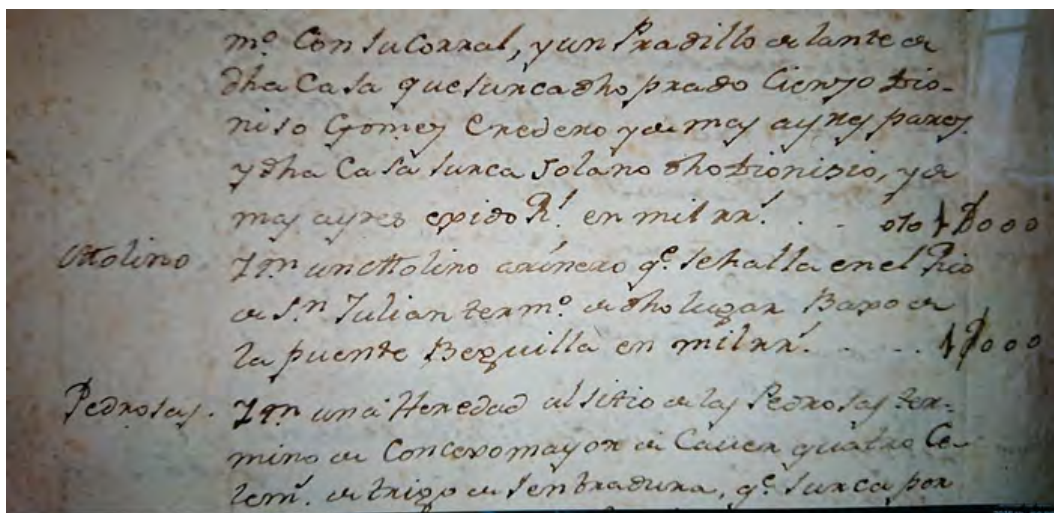 mo Con su Corral, y un Pradillo delante de
dha Casa que surca dho prado Cierzo Dio-
nisio Gomez Eredero y de mas ayres pares
y dha Casa surca Solano dho Dionisio, y de
mas ayres exido Rl. en mil rrs. . . oto 1000
Molino Ytn un Molino arinero qe. se halla en el Rio
de Sn. Julian termo de dho lugar Baxo de
la puente Bequilla en mil rrs. . . . 1000
Pedrosas. Ytn una Heredad al sitio de las Pedrosas ter-
mino de Concexo mayor de Caver quatro Ce-
lems. de trigo de sembradura, qe. surca por